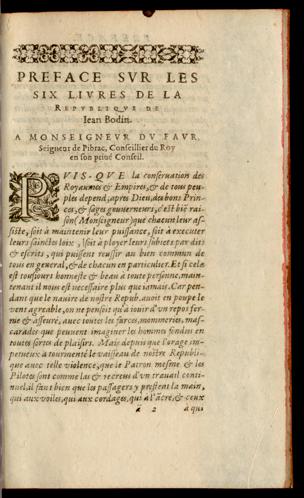 PREFACE SVR LES
SIX LIVRES DE LA
REPVBLIQVE DE
Iean Bodin.
A MONSEIGNEVR DV FAVR,
Seigneur de Pibrac, Conseillier du Roy
en son priué Conseil.
PVIS-QVE la conseruation des
Royaumes & Empires, & de tous peu-
ples depend, apres Dieu, des bons Prin-
ces, & sages gouuerneurs, c'est biē rai-
son (Monseigneur) que chacun leur as-
siste, soit à maintenir leur puissance, soit à executer
leurs sainctes loix, soit à ployer leurs subiets par dits
& escrits, qui puissent reussir au bien commun de
tous en general, & de chacun en particulier. Et si cela
est tousiours honneste & beau à toute personne, main-
tenant il nous est necessaire plus que iamais. Car pen-
dant que le nauire de nostre Repub. auoit en poupe le
vent agreable, on ne pensoit qu'à iouir d'vn repos fer-
me & asseuré, auec toutes les farces, mommeries, mas-
carades que peuuent imaginer les hommes fondus en
toutes sortes de plaisirs. Mais depuis que l'orage im-
petueux a tourmenté le vaisseau de nostre Republi-
que auec telle violence, que le Patron mesme & les
Pilotes sont comme las & recreus d'vn trauail conti-
nuel, il faut bien que les passagers y prestent la main,
qui aux voiles, qui aux cordages, qui à l'ācre, & ceux
á 2 a qui